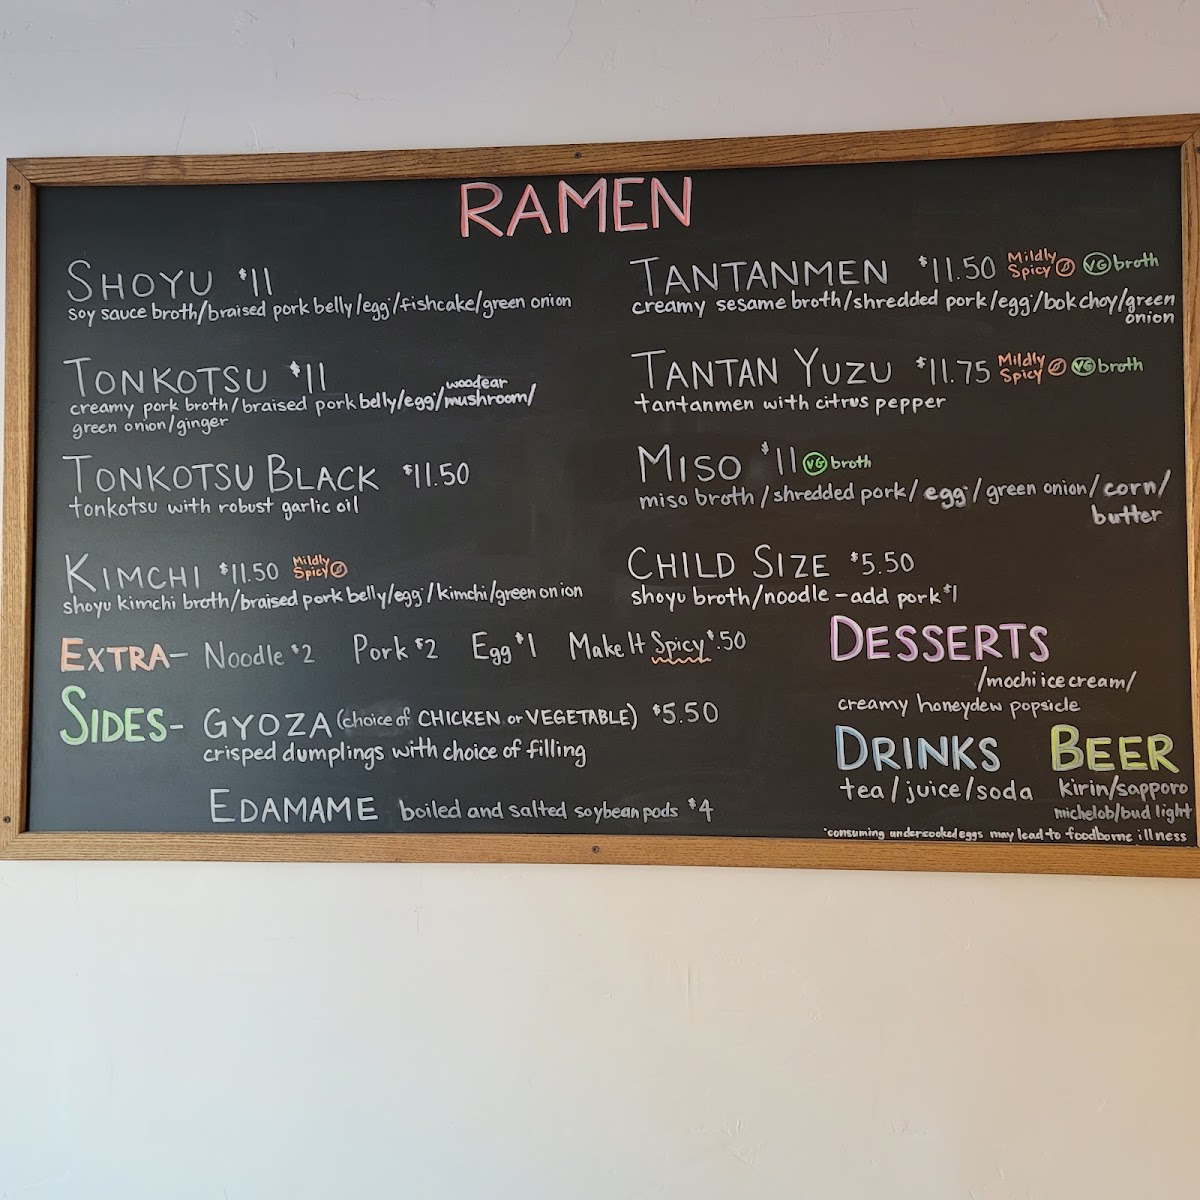 RAMEN
SHOYU $11
soy sauce broth/braised pork belly/egg*/fishcake/green onion
TONKOTSU $11
woodear
creamy pork broth/braised pork belly/egg*/mushroom/
green onion/ginger
TONKOTSU BLACK $11.50
tonkotsu with robust garlic oil
KIMCHI $11.50 Mildly
Spicy
shoyu kimchi broth/braised pork belly/egg*/kimchi/green onion
TANTANMEN $11.50 Mildly
Spicy VG broth
creamy sesame broth/shredded pork/egg*/bok choy/green
onion
TANTAN YUZU $11.75 Mildly
Spicy VG broth
tantanmen with citrus pepper
MISO $11 VG broth
miso broth/shredded pork/egg*/green onion/corn/
butter
CHILD SIZE $5.50
shoyu broth/noodle - add pork $1
EXTRA- Noodle $2 Pork $2 Egg* $1 Make It Spicy $.50
SIDES- GYOZA (choice of CHICKEN or VEGETABLE) $5.50
crisped dumplings with choice of filling
EDAMAME boiled and salted soybean pods $4
DESSERTS
/mochi ice cream/
creamy honeydew popsicle
DRINKS
tea/juice/soda
BEER
kirin/sapporo
michelob/bud light
*consuming undercooked eggs may lead to foodborne illness